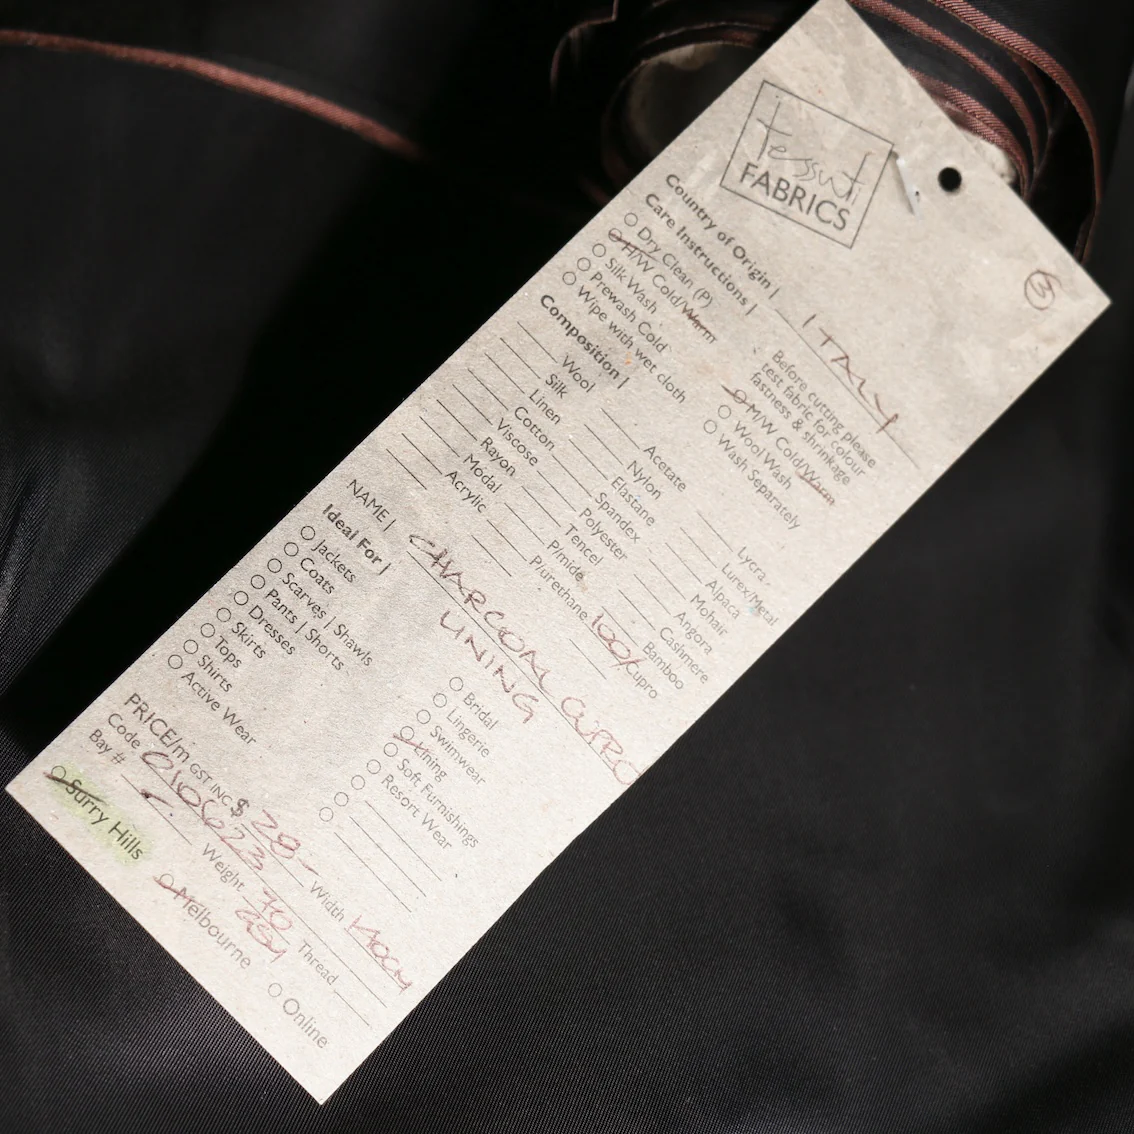 tessuti
FABRICS
3
Country of Origin | ITALY
Care Instructions |
Before cutting please
test fabric for colour
fastness & shrinkage
Dry Clean (P)
H/W Cold/Warm
Silk Wash
Prewash Cold
Wipe with wet cloth
M/W Cold/Warm
Wool Wash
Wash Separately
Composition |
Wool
Silk
Linen
Cotton
Viscose
Rayon
Modal
Acrylic
Acetate
Nylon
Elastane
Spandex
Polyester
Tencel
P/mide
P/urethane
Lycra
Lurex/Metal
Alpaca
Mohair
Angora
Cashmere
Bamboo
100/ Cupro
NAME | CHARCOAL CUPRO
LINING
Ideal For |
Jackets
Coats
Scarves | Shawls
Pants | Shorts
Dresses
Skirts
Tops
Shirts
Active Wear
Bridal
Lingerie
Swimwear
Lining
Soft Furnishings
Resort Wear
PRICE/m GST INC $ 28-
Width 140cm
Code 010623
Weight 70 GSM
Thread
Bay #
Surry Hills
Melbourne
Online